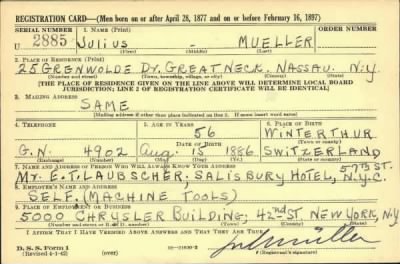 REGISTRATION CARD—(Men born on or after April 28, 1877 and on or before February 16, 1897)
SERIAL NUMBER 1. NAME (Print) ORDER NUMBER
U 2885 Julius - MUELLER
2. PLACE OF RESIDENCE (Print)
25 GRENWOLDE DR. GREAT NECK, NASSAU. N.Y.
(Number and street) (Town, township, village, or city) (County) (State)
[THE PLACE OF RESIDENCE GIVEN ON THE LINE ABOVE WILL DETERMINE LOCAL BOARD
JURISDICTION; LINE 2 OF REGISTRATION CERTIFICATE WILL BE IDENTICAL]
3. MAILING ADDRESS
SAME
[Mailing address if other than place indicated on line 2. If same insert word same]
4. TELEPHONE 5. AGE IN YEARS 6. PLACE OF BIRTH
56 WINTERTHUR
DATE OF BIRTH (Town or county)
G.N. 4902 Aug. 15 1886 SWITZERLAND
(Exchange) (Number) (Mo.) (Day) (Yr.) (State or country)
7. NAME AND ADDRESS OF PERSON WHO WILL ALWAYS KNOW YOUR ADDRESS 57TH ST.
Mr. E.T. LAUBSCHER, SALISBURY HOTEL, N.Y.C.
8. EMPLOYER'S NAME AND ADDRESS
SELF. (MACHINE TOOLS)
9. PLACE OF EMPLOYMENT OR BUSINESS
5000 CHRYSLER BUILDING; 42nd ST. NEW YORK, N.Y
(Number and street or R. F. D. number) (Town) (County) (State)
I AFFIRM THAT I HAVE VERIFIED ABOVE ANSWERS AND THAT THEY ARE TRUE.
D. S. S. Form 1
(Revised 4-1-42) (over) (Registrant's signature)